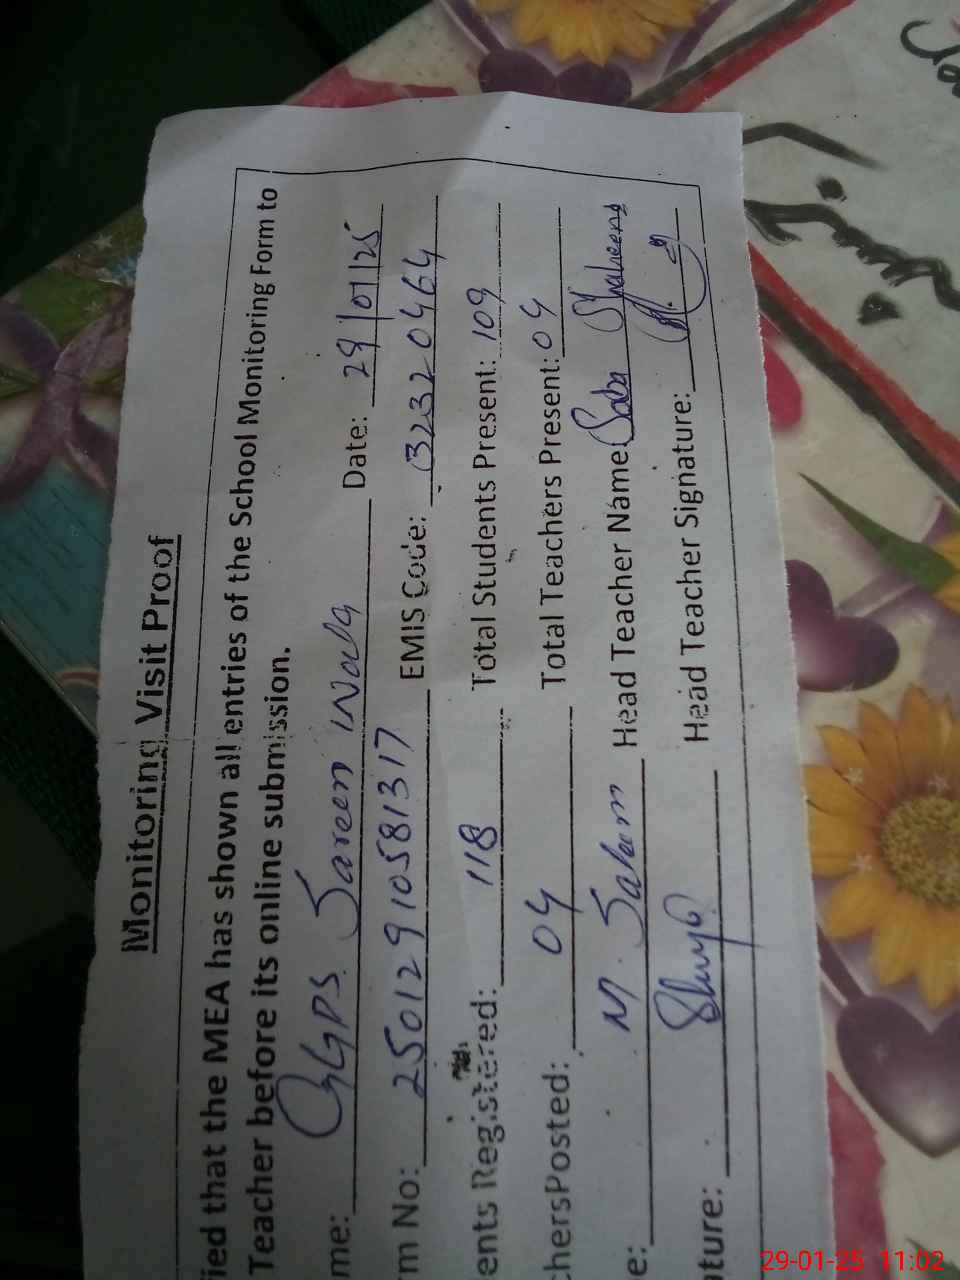 Monitoring Visit Proof
ied that the MEA has shown all entries of the School Monitoring Form to
Teacher before its online submission.
me: GGPS. Jareem Wala Date: 29/01/25
m No: 2501291058131７ EMIS Code: 32320464
ents Registered: 118 Total Students Present: 109
chersPosted: 04 Total Teachers Present: 04
e: M. Saleem Head Teacher Name: Saba Shaheen
ture: Head Teacher Signature:
29-01-25 11:02